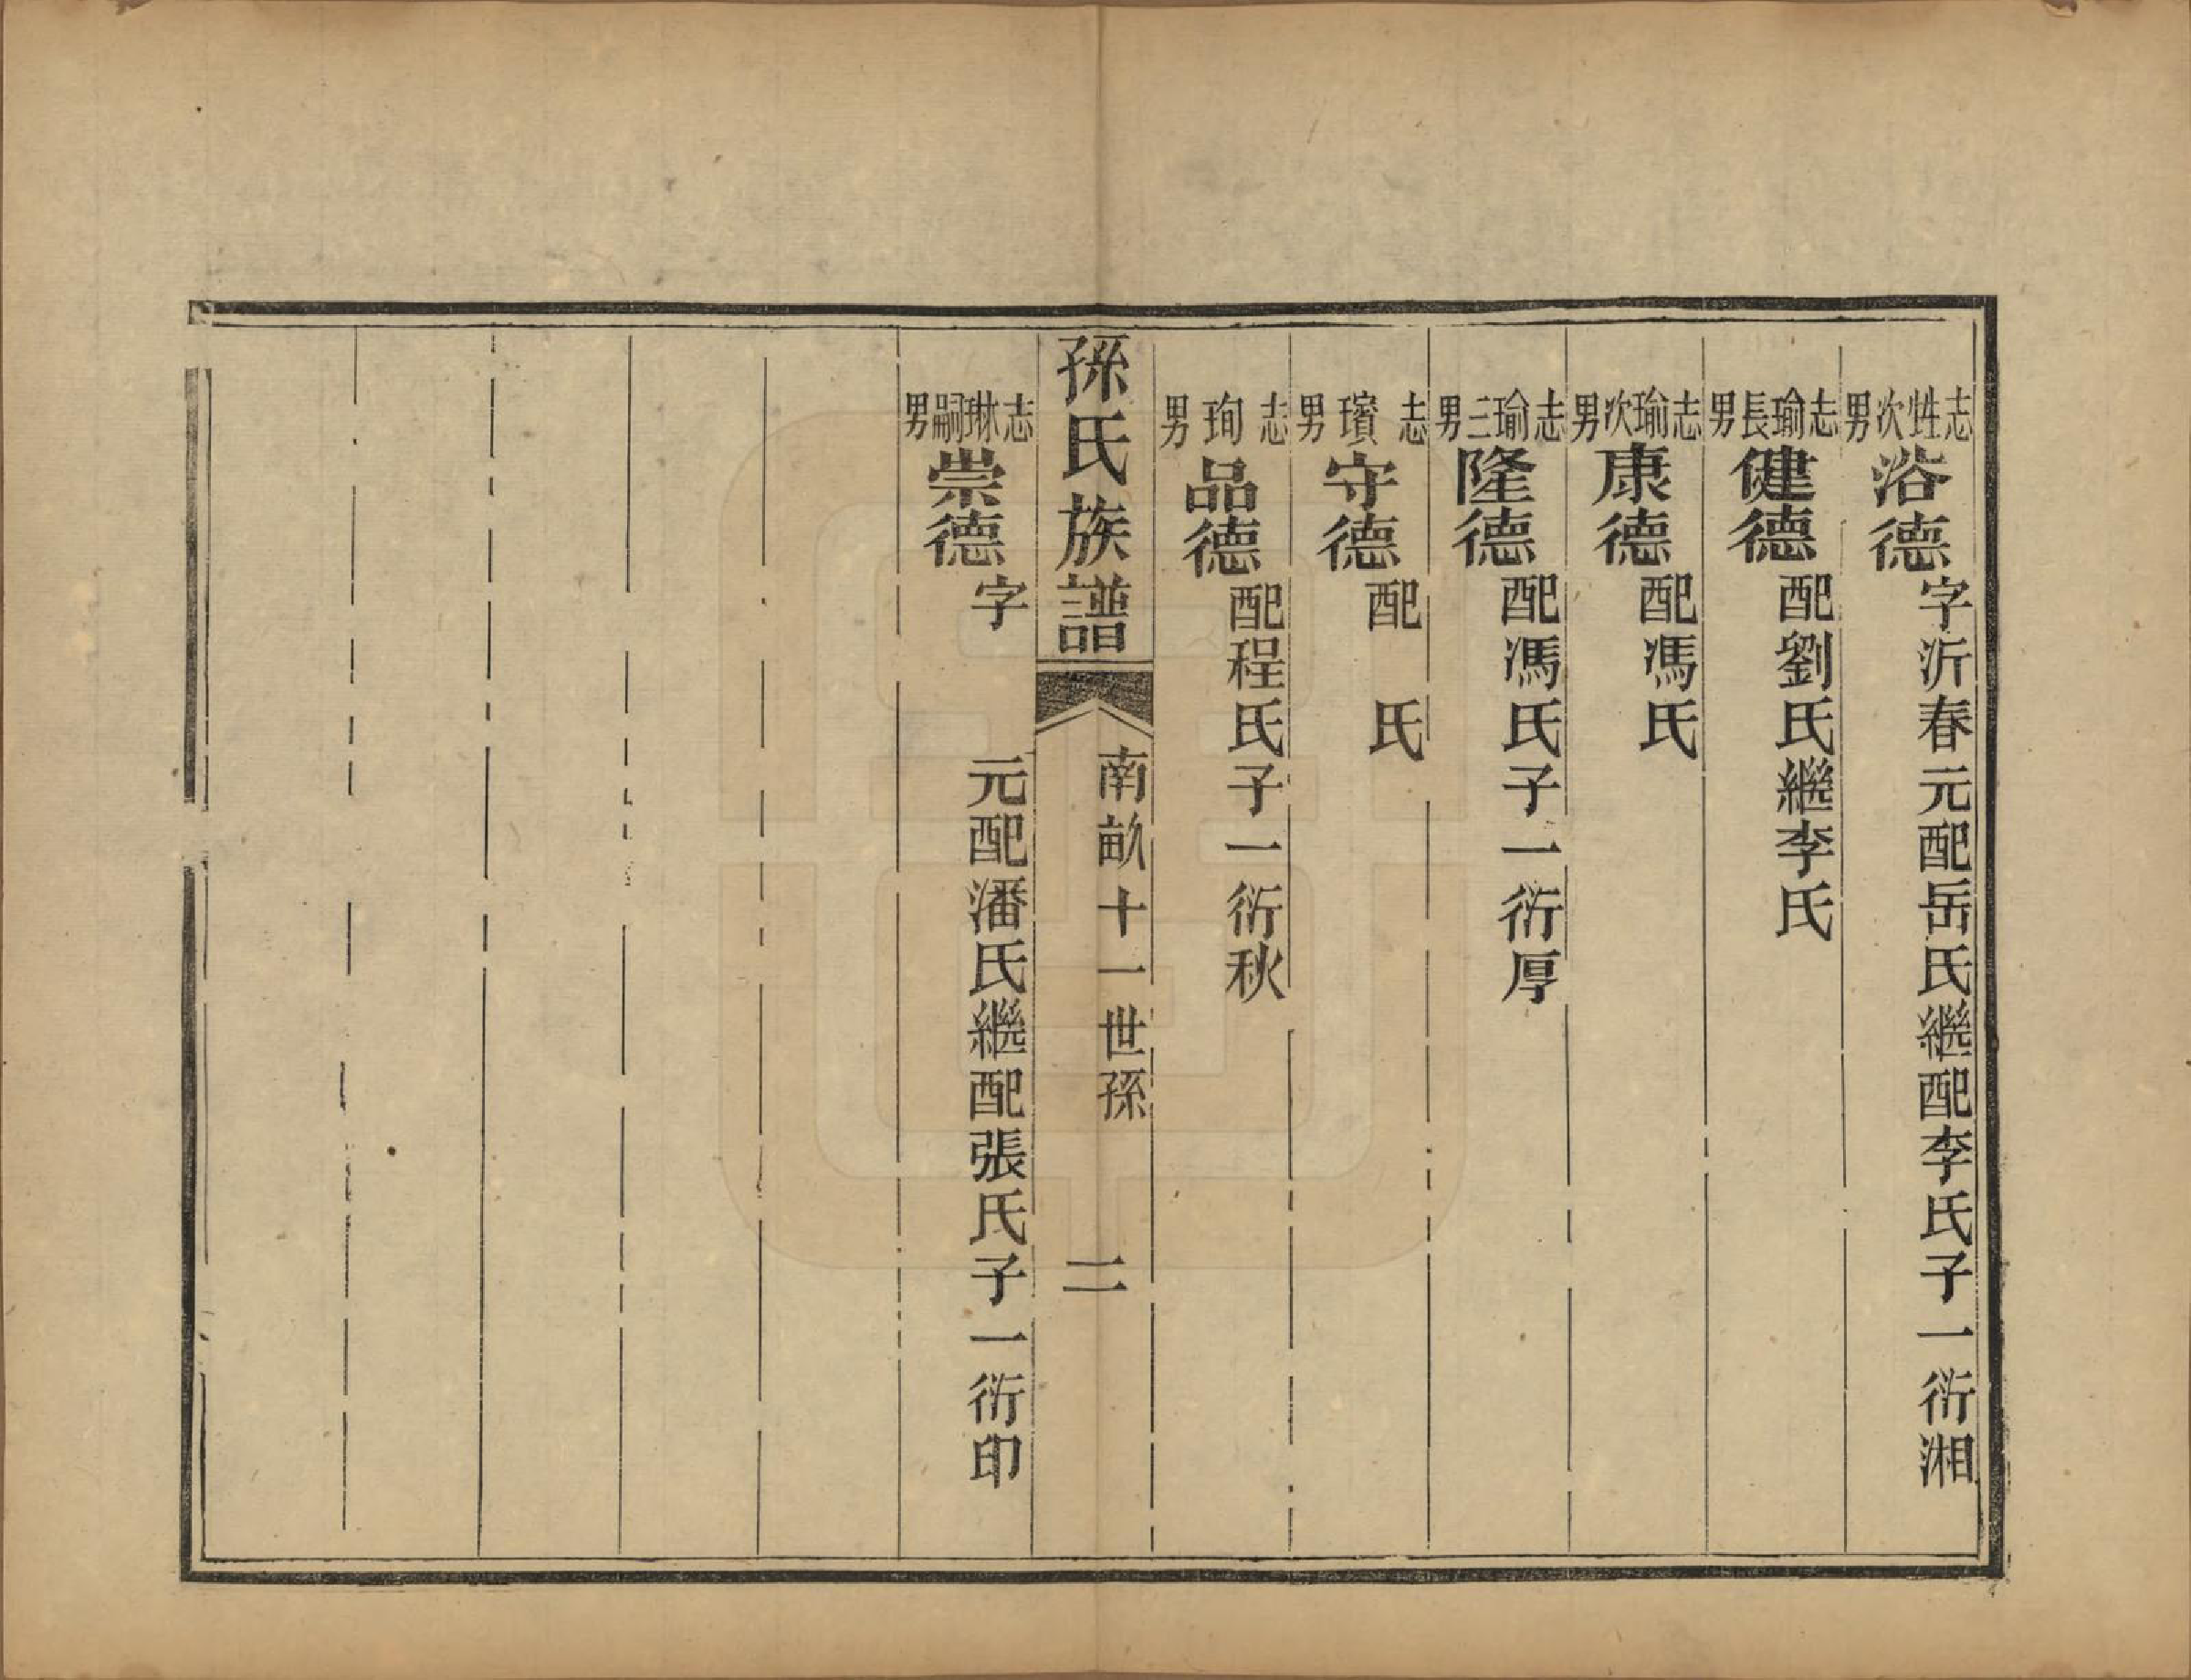 志甡次男 浴德 字沂春元配岳氏繼配李氏子一衍湘
志瑜長男 健德 配劉氏繼李氏
志瑜次男 康德 配馮氏
志瑜三男 隆德 配馮氏子一衍厚
志璸男 守德 配 氏
志珣男 品德 配程氏子一衍秋
孫氏族譜 南畝十一世孫 二
志琳嗣男 崇德 字 元配潘氏繼配張氏子一衍印